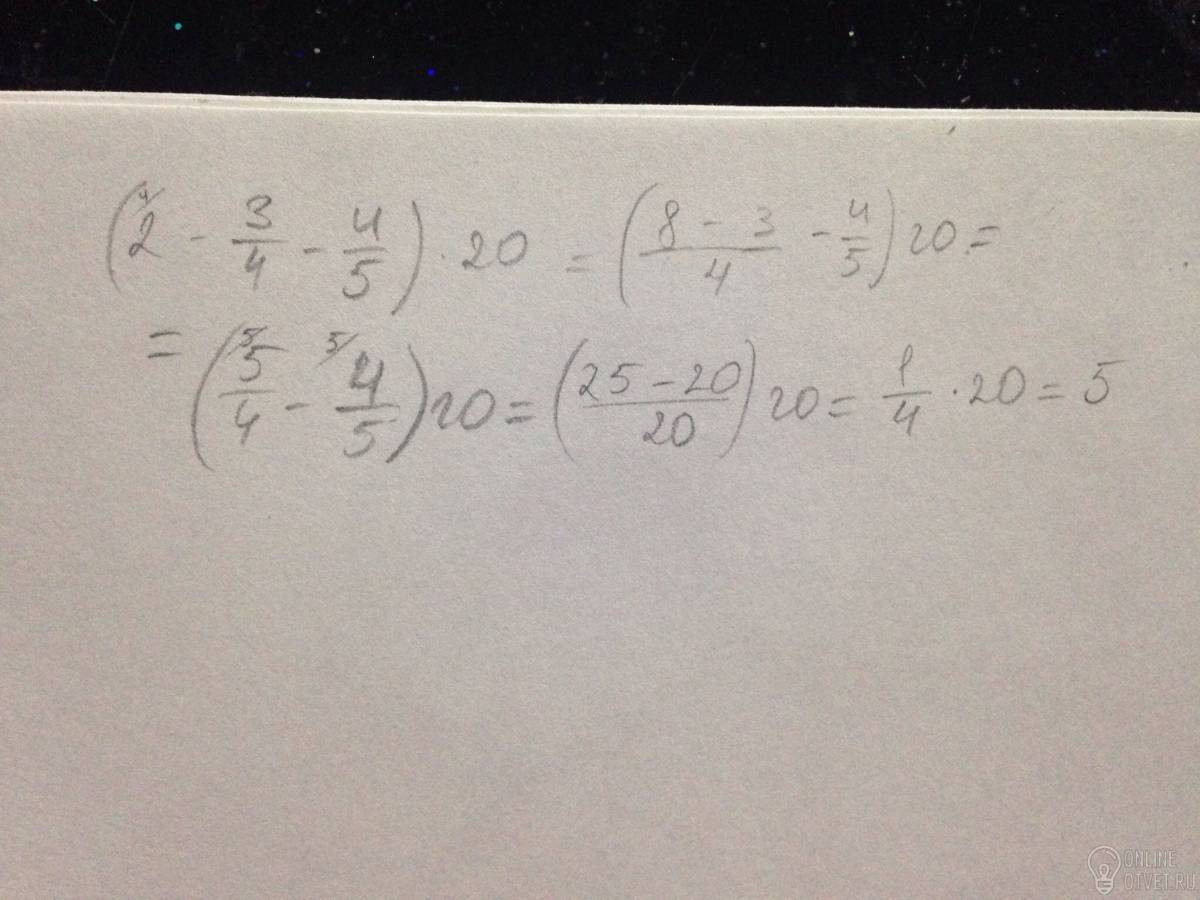 (2 4/ - 3/4 - 4/5) · 20 = (8 - 3/4 - 4/5) 20 =
= (5 5/ /4 - 5/ 4/5) 20 = (25 - 20/20) 20 = 1/4 · 20 = 5
ONLINE
OTVET.RU